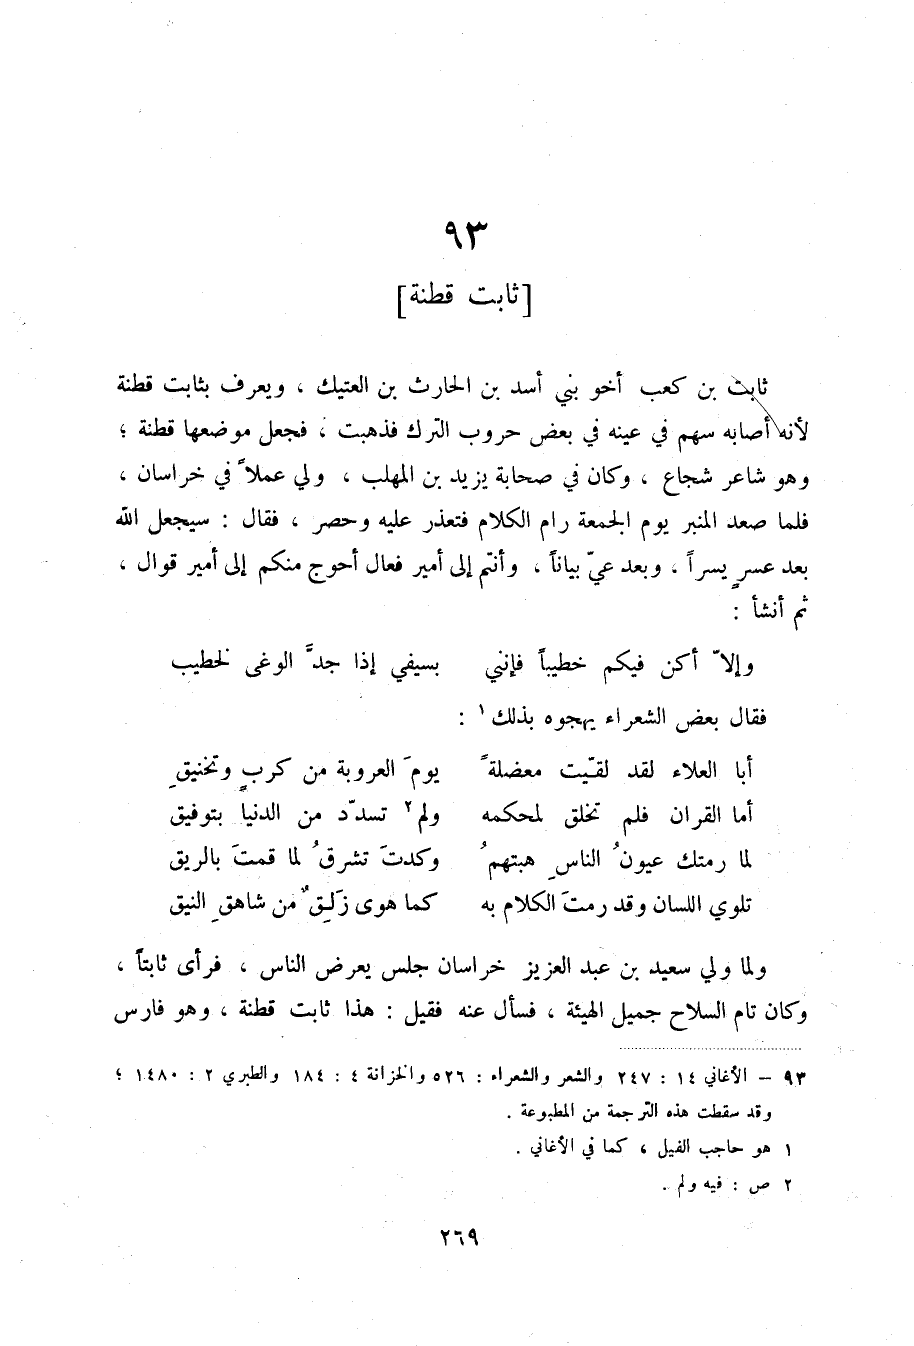 ٩٣
[ثابت قطنة]
ثابت بن كعب أخو بني أسد بن الحارث بن العتيك ، ويعرف بثابت قطنة
لأنه أصابه سهم في عينه في بعض حروب الترك فذهبت ، فجعل موضعها قطنة ؛
وهو شاعر شجاع ، وكان في صحابة يزيد بن المهلب ، ولي عملاً في خراسان ،
فلما صعد المنبر يوم الجمعة رام الكلام فتعذر عليه وحصر ، فقال : سيجعل الله
بعد عسرٍ يسراً ، وبعد عيّ بياناً ، وأنتم إلى أمير فعال أحوج منكم إلى أمير قوال ،
ثم أنشأ :
وإلاّ أكن فيكم خطيباً فإنني بسيفي إذا جدَّ الوغى لخطيب
فقال بعض الشعراء يهجوه بذلك ١ :
أبا العلاء لقد لقّيت معضلةً يومَ العروبة من كربٍ وتخنيقِ
أما القران فلم تخلق لمحكمه ولم ٢ تسدّد من الدنيا بتوفيق
لما رمتك عيونُ الناسِ هبتهمُ وكدتَ تشرقُ لما قمتَ بالريق
تلوي اللسان وقد رمتَ الكلام به كما هوى زَلِقٌ من شاهقِ النيق
ولما ولي سعيد بن عبد العزيز خراسان جلس يعرض الناس ، فرأى ثابتاً ،
وكان تام السلاح جميل الهيئة ، فسأل عنه فقيل : هذا ثابت قطنة ، وهو فارس
٩٣ – الأغاني ١٤ : ٢٤٧ والشعر والشعراء : ٥٢٦ والخزانة ٤ : ١٨٤ والطبري ٢ : ١٤٨٠ ؛
وقد سقطت هذه الترجمة من المطبوعة .
١ هو حاجب الفيل ، كما في الأغاني .
٢ ص : فيه ولم .
٢٦٩